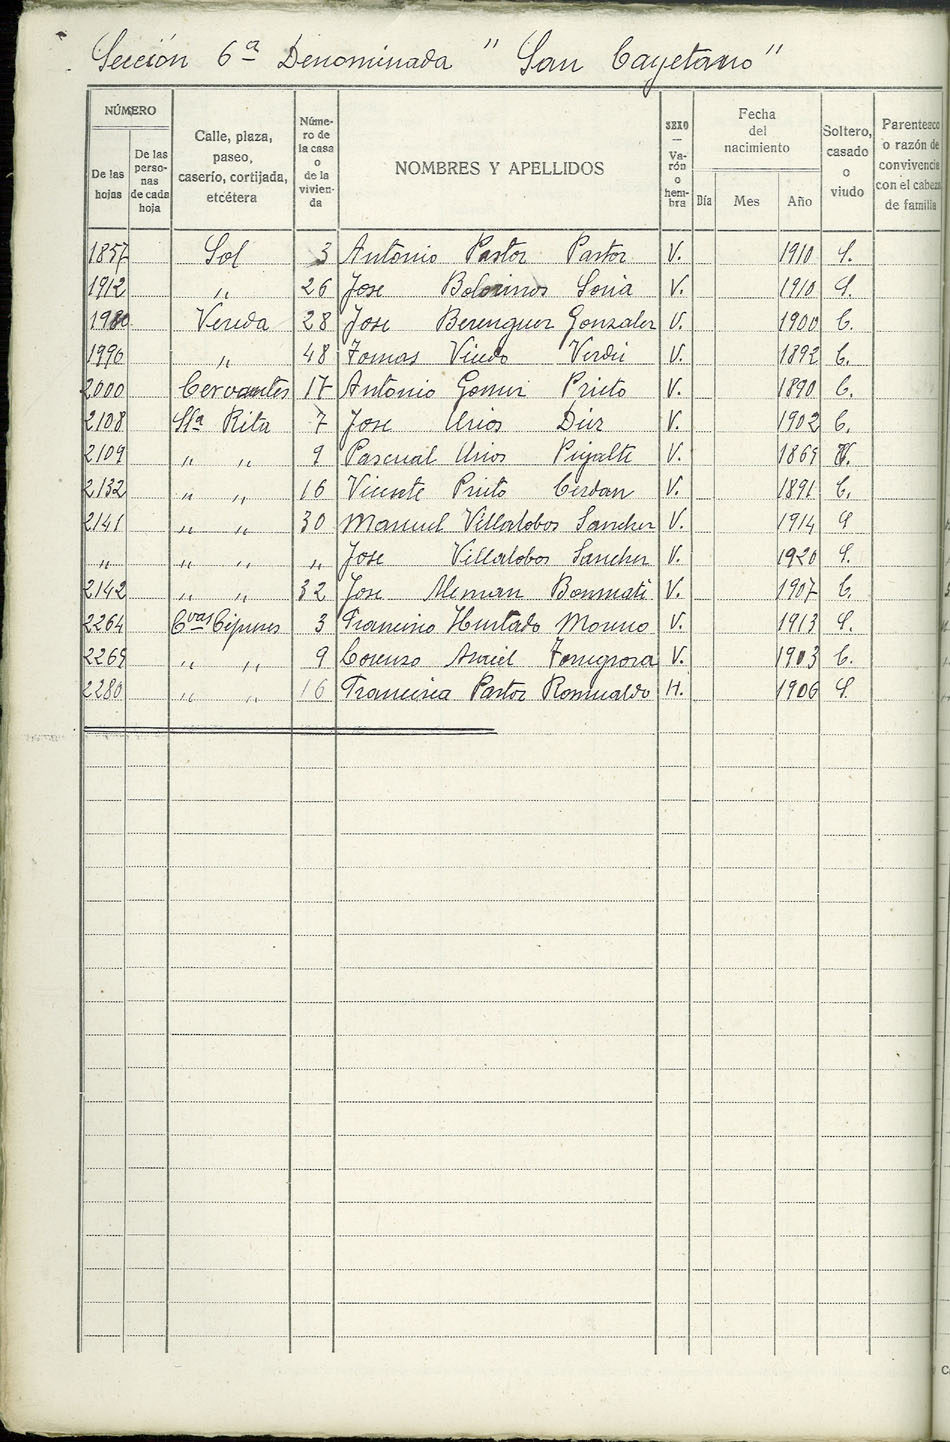 Sección 6ª Denominada " San Cayetano "
NÚMERO
De las hojas
De las perso-nas de cada hoja
Calle, plaza, paseo, caserío, cortijada, etcétera
Núme-ro de la casa o de la vivien-da
NOMBRES Y APELLIDOS
SEXO — Va-rón o hem-bra
Fecha del nacimiento
Día
Mes
Año
Soltero, casado o viudo
Parentesco o razón de convivencia con el cabeza de familia
1857 Sol 3 Antonio Pastor Pastor V. 1910 S.
1912 " 26 Jose Bolarinos Soria V. 1910 S.
1980 Vereda 28 Jose Berenguer Gonzalez V. 1900 C.
1996 " 48 Tomas Verdú V. 1892 C.
2000 Cervantes 17 Antonio Gomez Prieto V. 1890 C.
2108 Sta Rita 7 Jose Urios Diez V. 1902 C.
2109 " " 9 Pascual Urios V. 1869 V.
2132 " " 16 Vicente Prieto Cerdan V. 1891 C.
2141 " " 30 Manuel Villalobos Sanchez V. 1914 S
" " " " Jose Villalobos Sanchez V. 1920 S.
2142 " " 32 Jose Aleman Bonmati V. 1907 C.
2264 Cvas Cipreses 3 Francisco Hurtado Moreno V. 1913 S.
2269 " " 9 Lorenzo V. 1903 C.
2280 " " 16 Francisca Pastor Romualdo H. 1906 S.